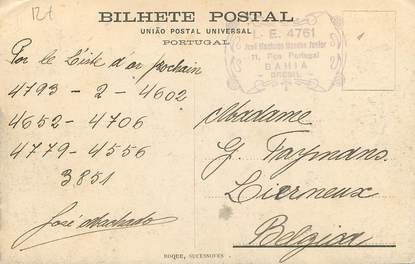 12t
BILHETE POSTAL
UNIÃO POSTAL UNIVERSAL
PORTUGAL
L. E. 4761
José Machado Junior
11, Rua Portugal
BAHIA
BRESIL
Por le Liste d'or prochain
4793 - 2 - 4602
4652 - 4706
4779 - 4556
3851
José Machado
Madame
G. Faymans
Lierneux
Belgica
ROQUE, SUCESSORES